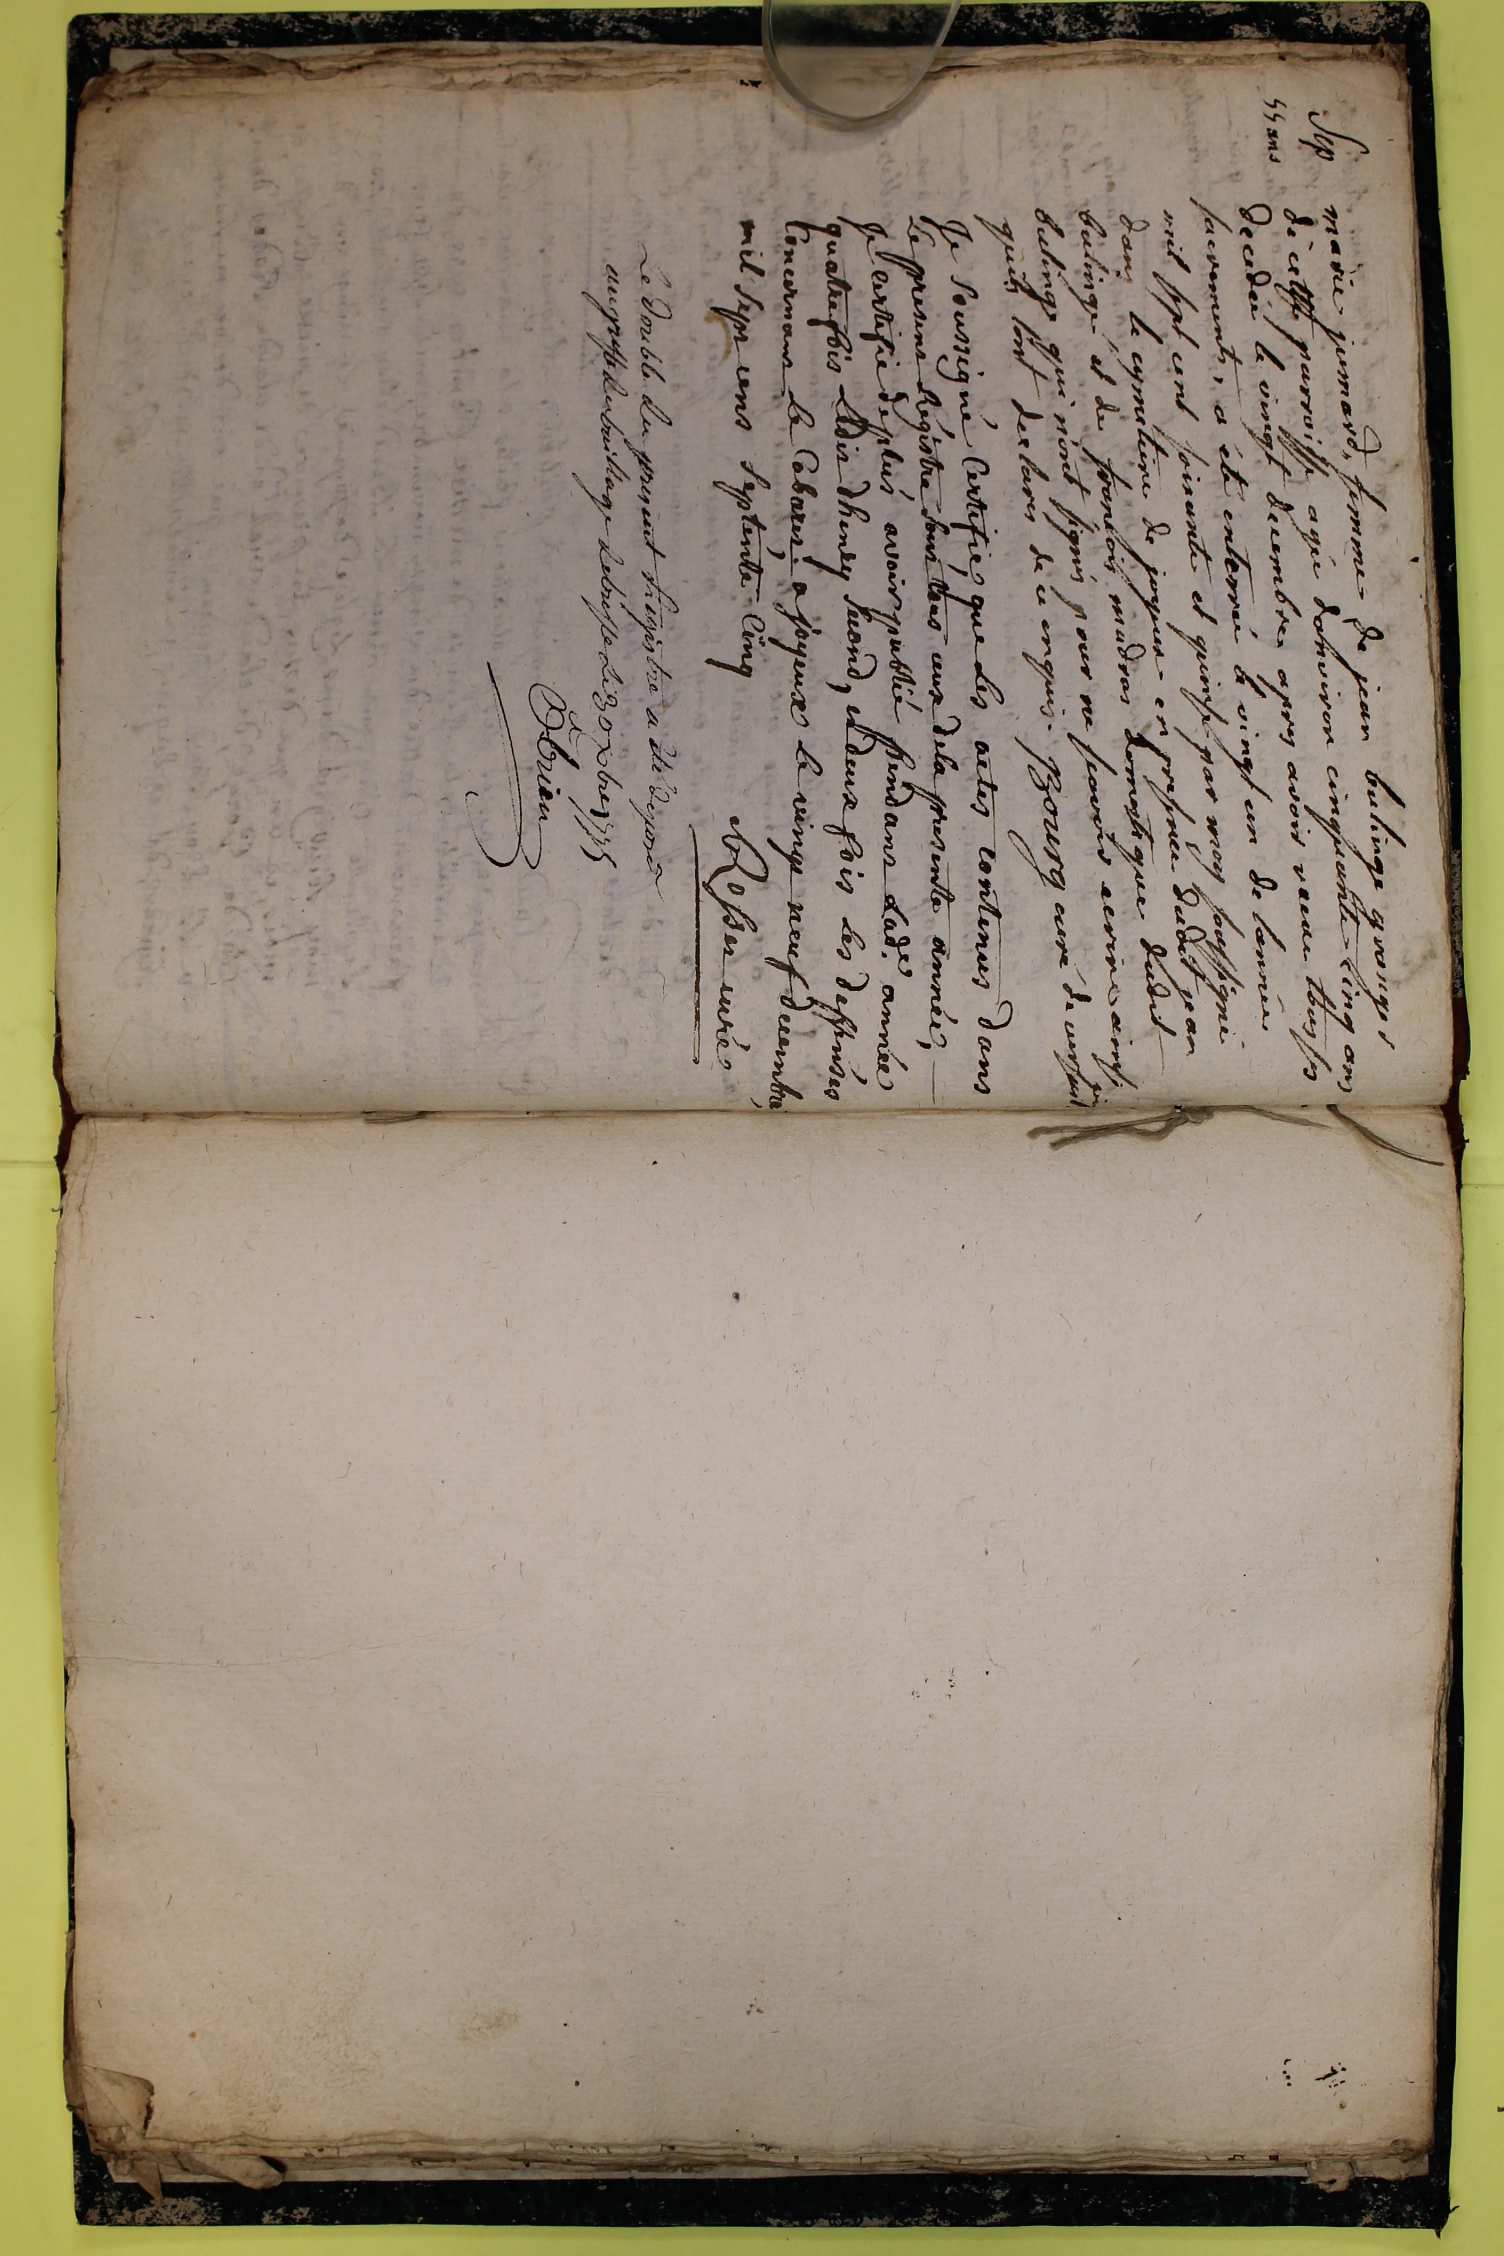 Sep
55 ans
marie jumard, femme de jean bulinge granger
de cette parroisse agée d'environ cinquante cinq ans
decedée le vingt decembre apres avoir recu tous ses
sacrements, a été enterrée le vingt un de l'année
mil sept cent soixante et quinze par moy soussigné
dans le cymetiere de joyeux en presence dudit jean
bulinge et de francois madras domestique dudit
bulinge qui n'ont signés pour ne scavoir ecrire ainsi
quils l'ont declarés de ce enquis. Bourg curé de
Je soussigné Certifie, que les actes contenus dans
Le present Régistre sont tous ceux de la presente année,
Je Certifie de plus avoir publié pendant lad.e année
quatre fois Ledit dhenry second, et deux fois les deffenses
Concernant Le Cabaret. a joyeux le vingt neuf decembre,
mil sept cens septente Cinq
Rosser curé
Le double du present Registre a été deposé
au greffe du bailliage de bresse le 30 xbre 1775